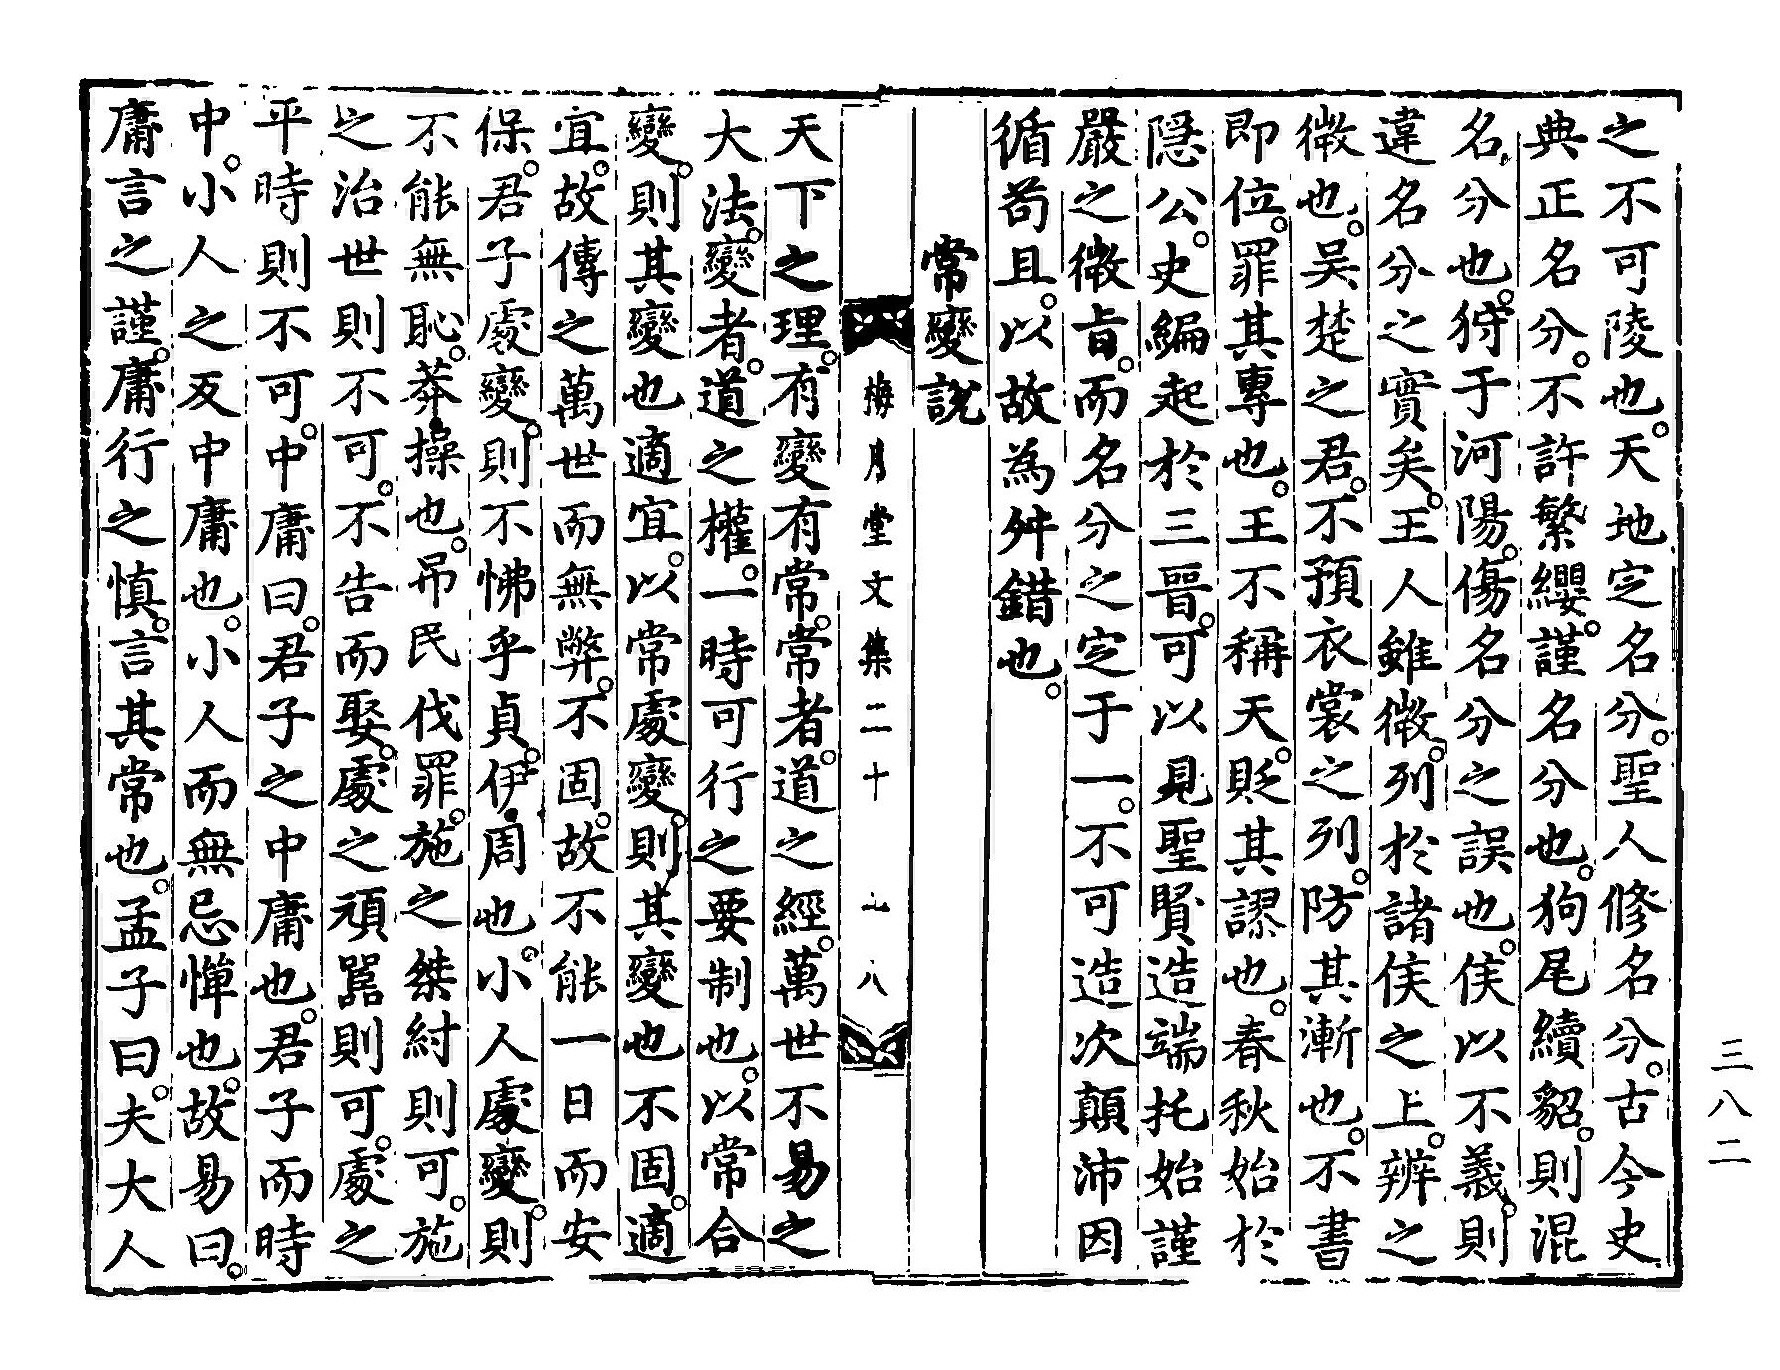 之不可陵也。天地定名分。聖人修名分。古今史
典正名分。不許繁纓。謹名分也。狗尾續貂。則混
名分也。狩于河陽。傷名分之誤也。侯以不義。則
違名分之實矣。王人雖微。列於諸侯之上。辨之
微也。吴楚之君。不預衣裳之列。防其漸也。不書
即位。罪其專也。王不稱天。貶其謬也。春秋始於
隱公。史編起於三晉。可以見聖賢造端托始謹
嚴之微旨。而名分之定于一。不可造次顛沛因
循苟且。以故為舛錯也。
常變說
梅月堂文集二十 七八
天下之理。有變有常。常者。道之經。萬世不易之
大法。變者。道之權。一時可行之要制也。以常合
變。則其變也適宜。以常處變。則其變也不固。適
宜。故傳之萬世而無弊。不固。故不能一日而安
保。君子處變。則不怫乎貞。伊周也。小人處變。則
不能無恥。莽操也。吊民伐罪。施之桀紂則可。施
之治世則不可。不告而娶。處之頑嚚則可。處之
平時則不可。中庸曰。君子之中庸也。君子而時
中。小人之反中庸也。小人而無忌憚也。故易曰。
庸言之謹。庸行之慎。言其常也。孟子曰。夫大人
三八二